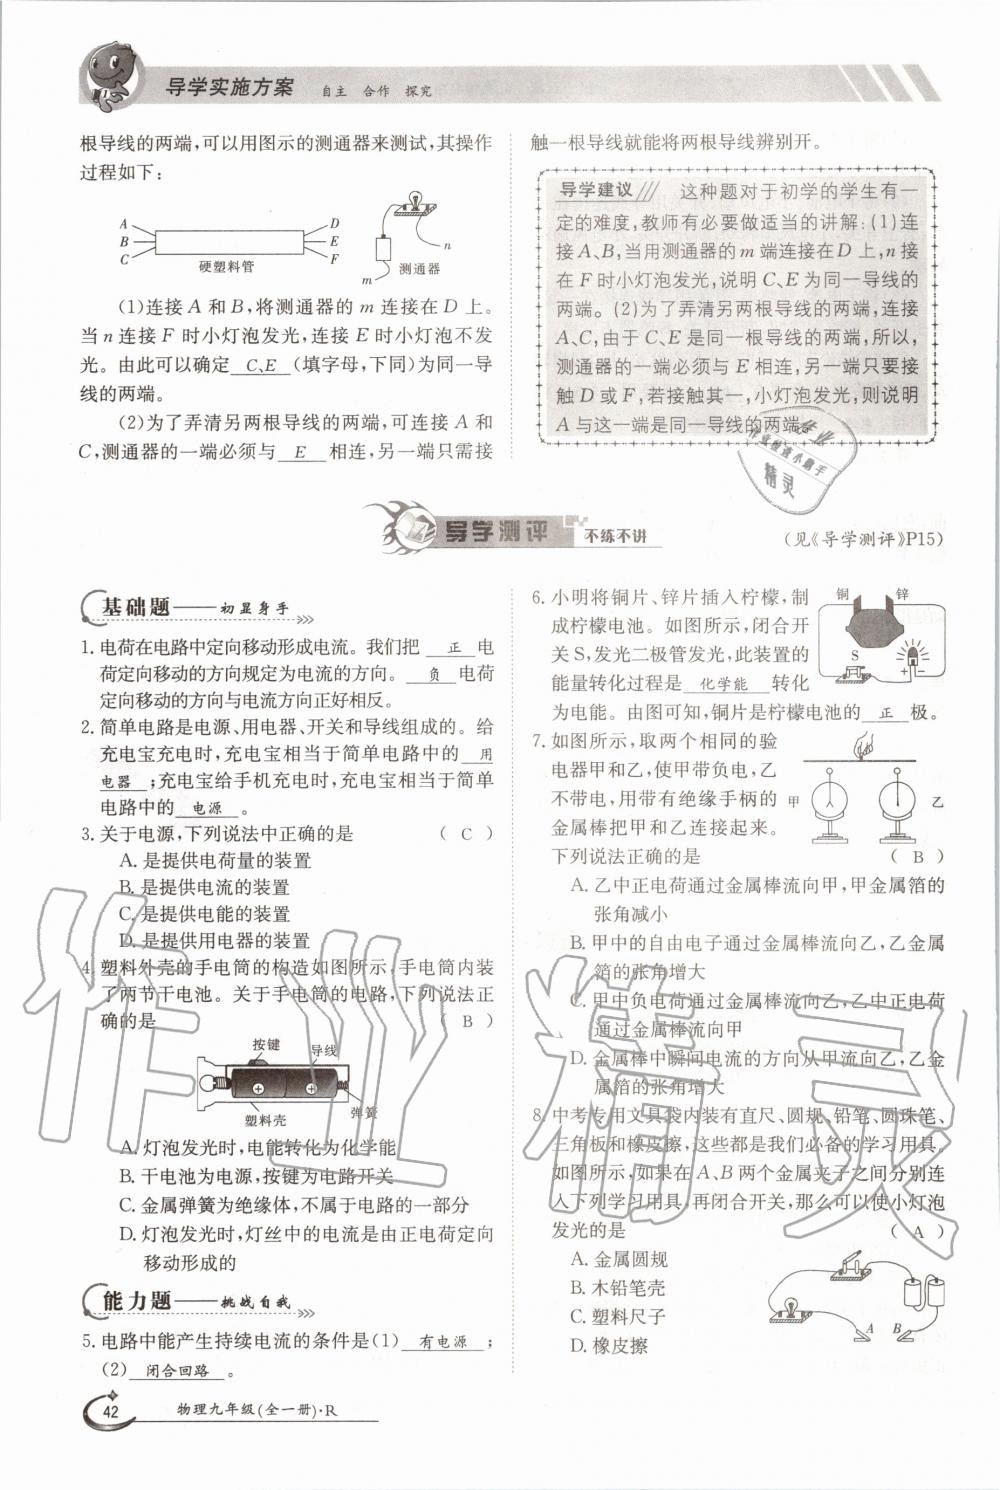 导学实施方案 自主 合作 探究
根导线的两端,可以用图示的测通器来测试,其操作
过程如下:
A
B
C
D
E
F
硬塑料管
m
n
测通器
(1)连接 A 和 B,将测通器的 m 连接在 D 上。
当 n 连接 F 时小灯泡发光,连接 E 时小灯泡不发
光。由此可以确定 C、E (填字母,下同)为同一导
线的两端。
(2)为了弄清另两根导线的两端,可连接 A 和
C,测通器的一端必须与 E 相连,另一端只需接
触一根导线就能将两根导线辨别开。
导学建议 这种题对于初学的学生有一
定的难度,教师有必要做适当的讲解:(1)连
接A、B,当用测通器的m端连接在D上,n接
在F时小灯泡发光,说明C、E为同一导线的
两端。(2)为了弄清另两根导线的两端,连接
A、C,由于C、E是同一根导线的两端,所以,
测通器的一端必须与E相连,另一端只要接
触D或F,若接触其一,小灯泡发光,则说明
A与这一端是同一导线的两端。
作业检查小助手
精灵
导学测评 不练不讲
(见《导学测评》P15)
基础题——初显身手
1. 电荷在电路中定向移动形成电流。我们把 正 电
荷定向移动的方向规定为电流的方向。 负 电荷
定向移动的方向与电流方向正好相反。
2. 简单电路是电源、用电器、开关和导线组成的。给
充电宝充电时,充电宝相当于简单电路中的 用
电器 ;充电宝给手机充电时,充电宝相当于简单
电路中的 电源 。
3. 关于电源,下列说法中正确的是 ( C )
A. 是提供电荷量的装置
B. 是提供电流的装置
C. 是提供电能的装置
D. 是提供用电器的装置
4. 塑料外壳的手电筒的构造如图所示,手电筒内装
了两节干电池。关于手电筒的电路,下列说法正
确的是 ( B )
按键
导线
塑料壳
弹簧
A. 灯泡发光时,电能转化为化学能
B. 干电池为电源,按键为电路开关
C. 金属弹簧为绝缘体,不属于电路的一部分
D. 灯泡发光时,灯丝中的电流是由正电荷定向
移动形成的
能力题——挑战自我
5. 电路中能产生持续电流的条件是(1) 有电源 ;
(2) 闭合回路 。
6. 小明将铜片、锌片插入柠檬,制
成柠檬电池。如图所示,闭合开
关 S,发光二极管发光,此装置的
能量转化过程是 化学能 转化
为电能。由图可知,铜片是柠檬电池的 正 极。
铜
锌
S
+ −
7. 如图所示,取两个相同的验
电器甲和乙,使甲带负电,乙
不带电,用带有绝缘手柄的
金属棒把甲和乙连接起来。
下列说法正确的是 ( B )
甲
乙
A. 乙中正电荷通过金属棒流向甲,甲金属箔的
张角减小
B. 甲中的自由电子通过金属棒流向乙,乙金属
箔的张角增大
C. 甲中负电荷通过金属棒流向乙,乙中正电荷
通过金属棒流向甲
D. 金属棒中瞬间电流的方向从甲流向乙,乙金
属箔的张角增大
8. 中考专用文具袋内装有直尺、圆规、铅笔、圆珠笔、
三角板和橡皮擦,这些都是我们必备的学习用具,
如图所示,如果在 A、B 两个金属夹子之间分别连
入下列学习用具,再闭合开关,那么可以使小灯泡
发光的是 ( A )
A. 金属圆规
B. 木铅笔壳
C. 塑料尺子
D. 橡皮擦
A
B
作业精灵
42 物理九年级(全一册)·R